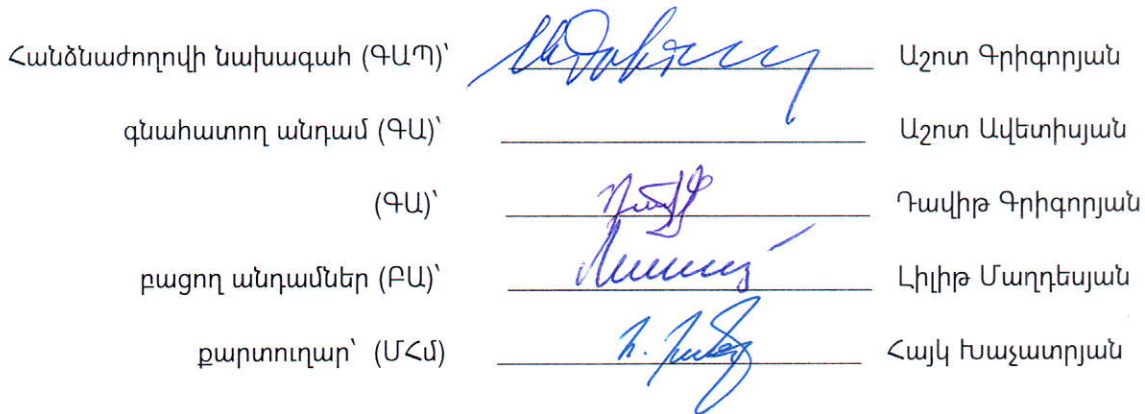 Հանձնաժողովի նախագահ (ԳԱՊ)՝ Աշոտ Գրիգորյան
գնահատող անդամ (ԳԱ)՝ Աշոտ Ավետիսյան
(ԳԱ)՝ Դավիթ Գրիգորյան
բացող անդամներ (ԲԱ)՝ Լիլիթ Մաղդեսյան
քարտուղար՝ (ՄՀմ) Հայկ Խաչատրյան